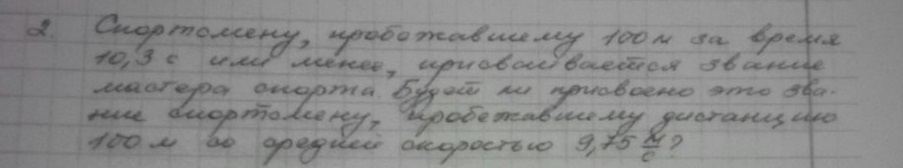 2. Спортсмену, пробежавшему 100 м за время
10,3 с или менее, присваивается звание
мастера спорта. Будет ли присвоено это зва-
ние спортсмену, пробежавшему дистанцию
100 м со средней скоростью 9,75 м/с?